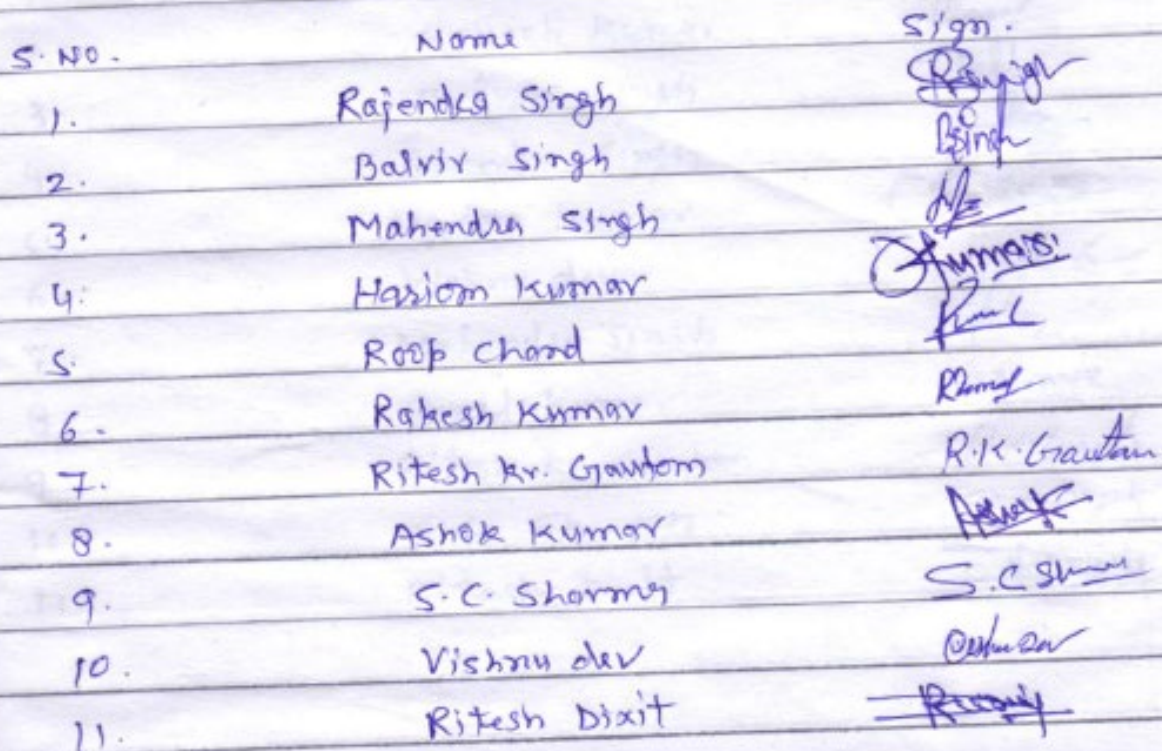 S. NO. Name Sign.
1. Rajendra Singh
2. Balvir Singh BSingh
3. Mahendra Singh
4. Hariom Kumar
5. Roop Chand
6. Rakesh Kumar
7. Ritesh Kr. Gautom R.K. Gautam
8. Ashok Kumar Ashok
9. S.C. Sharma S.C Sharma
10. Vishnu dev
11. Ritesh Dixit